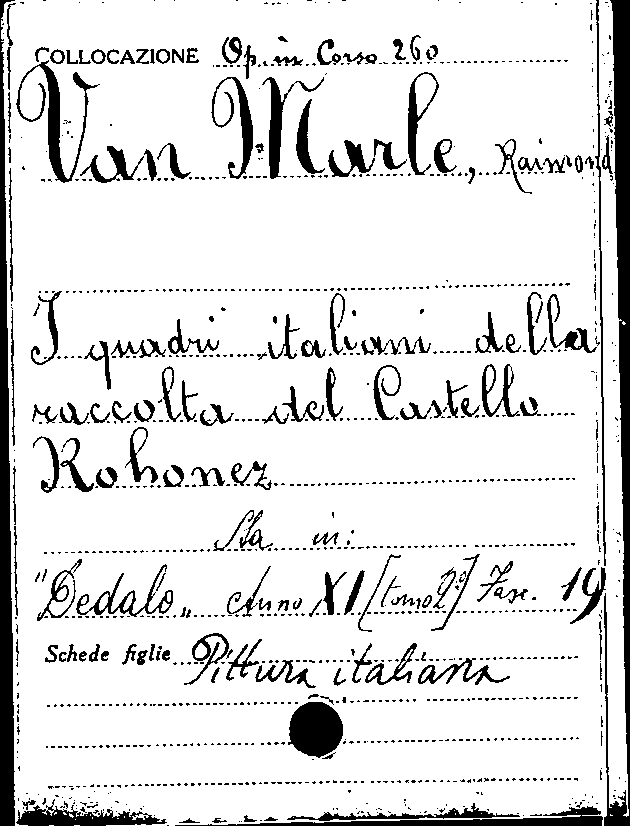 COLLOCAZIONE Op. in Corso 260
Van Marle, Raimond
I quadri italiani della
raccolta del Castello
Rohonez
Sta in:
"Dedalo„ Anno XI [tomo 2º] Fasc. 19
Schede figlie Pittura italiana